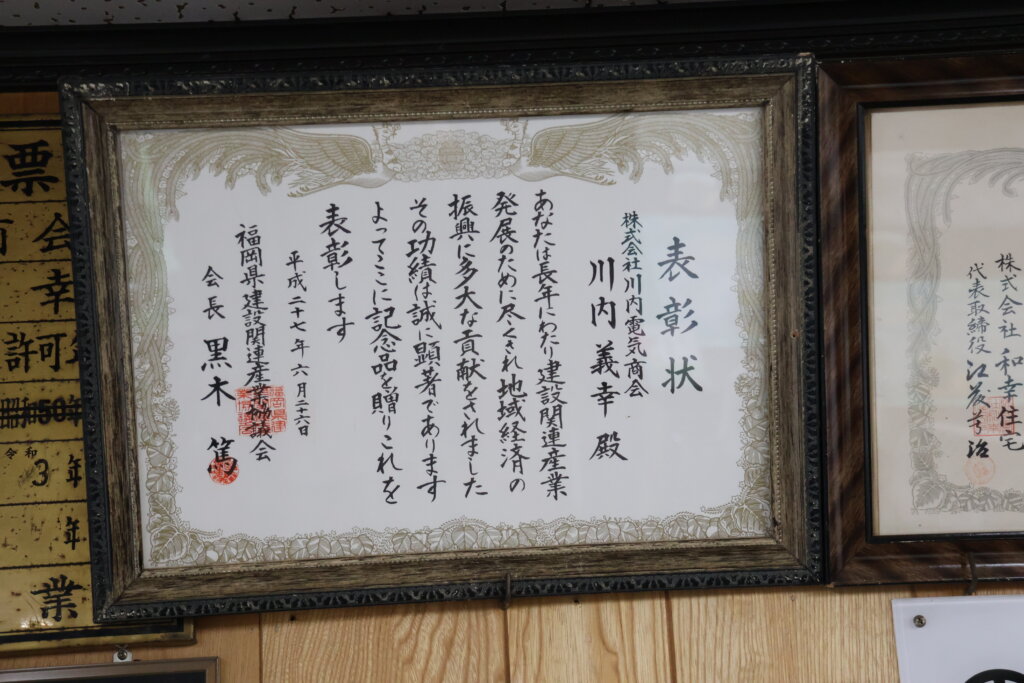 表彰状
株式会社川内電気商会
川内義幸殿
あなたは長年にわたり建設関連産業
発展のために尽くされ地域経済の
振興に多大な貢献をされました
その功績は誠に顕著であります
よってここに記念品を贈りこれを
表彰します
平成二十七年六月二十六日
福岡県建設関連産業協議会
会長 黒木 篤
株式会社 和幸住宅
代表取締役
票
会
幸
許可
50年
令和
3年
年
業